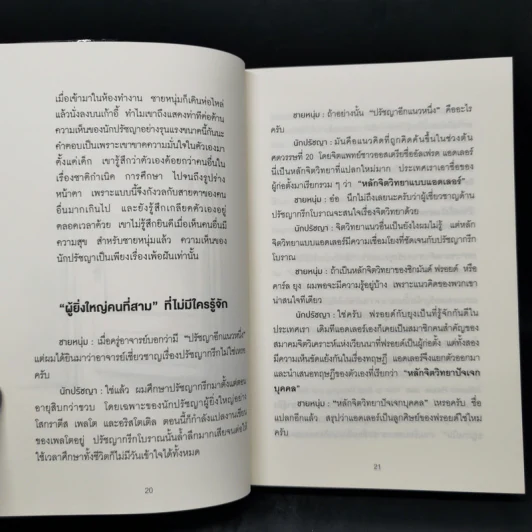 เมื่อเข้ามาในห้องทำงาน ชายหนุ่มก็เดินห่อไหล่
แล้วนั่งลงบนเก้าอี้ ทำไมเขาถึงแสดงท่าทีต่อต้าน
ความเห็นของนักปรัชญาอย่างรุนแรงขนาดนี้กันนะ
คำตอบเป็นเพราะเขาขาดความมั่นใจในตัวเองมา
ตั้งแต่เด็ก เขารู้สึกว่าตัวเองด้อยกว่าคนอื่นใน
เรื่องชาติกำเนิด การศึกษา ไปจนถึงรูปร่าง
หน้าตา เพราะแบบนี้จึงกังวลกับสายตาของคน
อื่นมากเกินไป และยังรู้สึกเกลียดตัวเองอยู่
ตลอดเวลาด้วย เขาไม่รู้สึกยินดีเมื่อเห็นคนอื่นมี
ความสุข สำหรับชายหนุ่มแล้ว ความเห็นของ
นักปรัชญาเป็นเพียงเรื่องเพ้อฝันเท่านั้น
“ผู้ยิ่งใหญ่คนที่สาม” ที่ไม่มีใครรู้จัก
ชายหนุ่ม : เมื่อครู่อาจารย์บอกว่ามี “ปรัชญาอีกแนวหนึ่ง”
แต่ผมได้ยินมาว่าอาจารย์เชี่ยวชาญเรื่องปรัชญากรีกไม่ใช่เหรอ
ครับ
นักปรัชญา : ใช่แล้ว ผมศึกษาปรัชญากรีกมาตั้งแต่ตอน
อายุสิบกว่าขวบ โดยเฉพาะของนักปรัชญาผู้ยิ่งใหญ่อย่าง
โสกราตีส เพลโต และอริสโตเติล ตอนนี้ก็กำลังแปลงานเขียน
ของเพลโตอยู่ ปรัชญากรีกโบราณนั้นล้ำลึกมากเสียจนต่อให้
ใช้เวลาศึกษาทั้งชีวิตก็ไม่มีวันเข้าใจได้ทั้งหมด
20
ชายหนุ่ม : ถ้าอย่างนั้น “ปรัชญาอีกแนวหนึ่ง” คืออะไร
ครับ
นักปรัชญา : มันคือแนวคิดที่ถูกคิดค้นขึ้นในช่วงต้น
ศตวรรษที่ 20 โดยจิตแพทย์ชาวออสเตรียชื่ออัลเฟรด แอดเลอร์
นี่เป็นหลักจิตวิทยาที่แปลกใหม่มาก ประเทศเราเอาชื่อของ
ผู้ก่อตั้งมาเรียกรวม ๆ ว่า “หลักจิตวิทยาแบบแอดเลอร์”
ชายหนุ่ม : อ๋อ นึกไม่ถึงเลยนะครับว่าผู้เชี่ยวชาญด้าน
ปรัชญากรีกโบราณจะสนใจเรื่องจิตวิทยาด้วย
นักปรัชญา : จิตวิทยาแนวอื่นเป็นยังไงผมไม่รู้ แต่หลัก
จิตวิทยาแบบแอดเลอร์มีความเชื่อมโยงที่ชัดเจนกับปรัชญากรีก
โบราณ
ชายหนุ่ม : ถ้าเป็นหลักจิตวิทยาของซิกมันด์ ฟรอยด์ หรือ
คาร์ล ยุง ผมพอจะมีความรู้อยู่บ้าง เพราะแนวคิดของพวกเขา
น่าสนใจทีเดียว
นักปรัชญา : ใช่ครับ ฟรอยด์กับยุงเป็นที่รู้จักกันดีใน
ประเทศเรา เดิมทีแอดเลอร์เองก็เคยเป็นสมาชิกคนสำคัญของ
สมาคมจิตวิเคราะห์แห่งเวียนนาที่ฟรอยด์เป็นผู้ก่อตั้ง แต่ทั้งสอง
มีความเห็นขัดแย้งกันในเรื่องทฤษฎี แอดเลอร์จึงแยกตัวออกมา
และนำเสนอทฤษฎีของตัวเองที่เรียกว่า “หลักจิตวิทยาปัจเจก
บุคคล”
ชายหนุ่ม : “หลักจิตวิทยาปัจเจกบุคคล” เหรอครับ ชื่อ
แปลกอีกแล้ว สรุปว่าแอดเลอร์เป็นลูกศิษย์ของฟรอยด์ใช่ไหม
ครับ
21